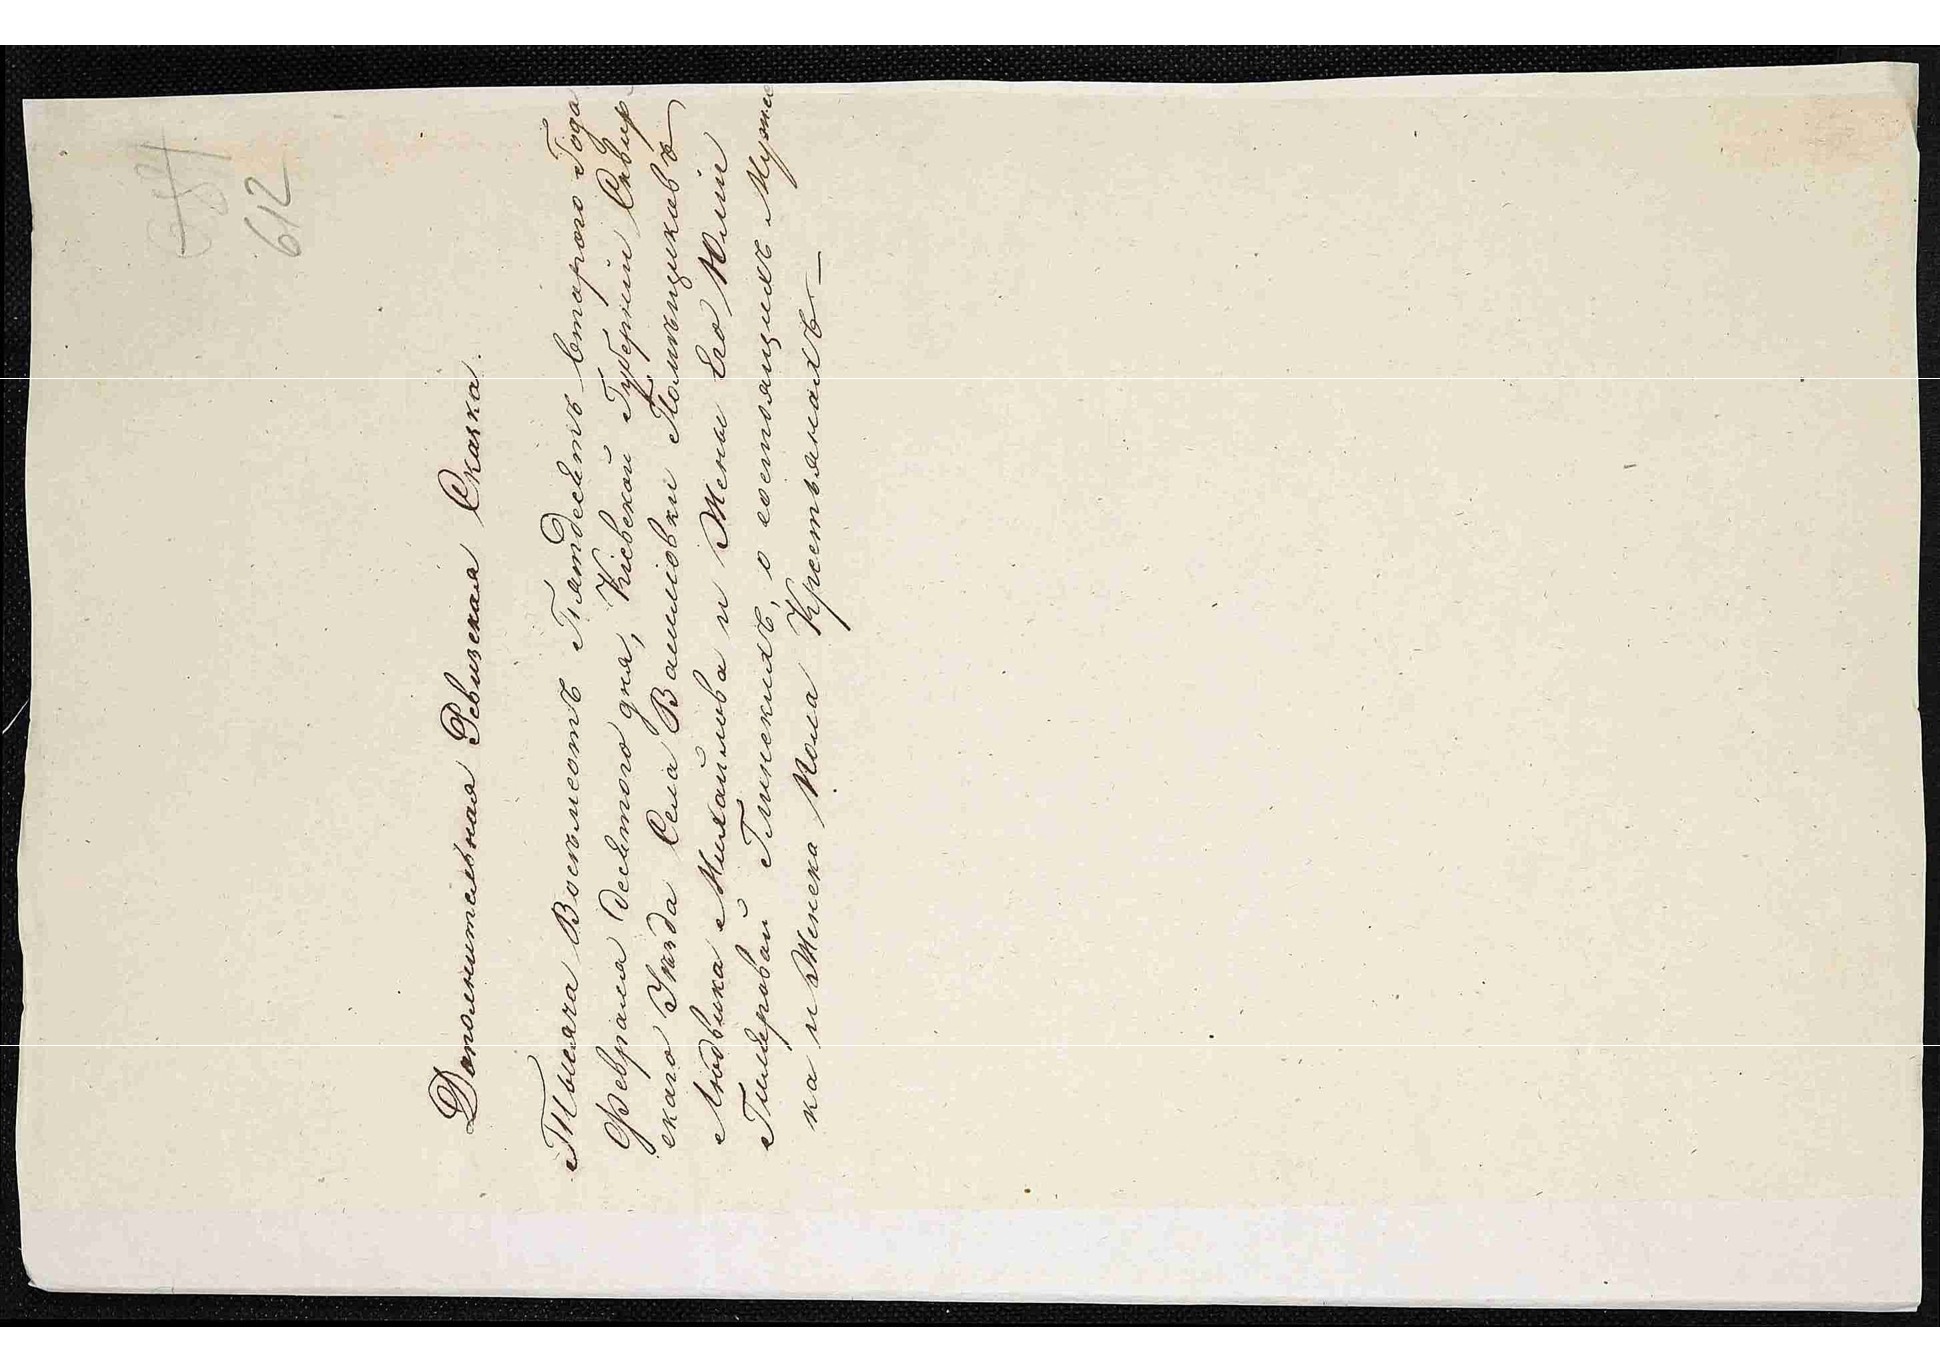 681
612
Дополнительная Ревизская Сказка
Тысяча Восемъсотъ Пятдесятъ втарого Года
Февраля десятого дня, Кіевской Губерніи Сквир-
скаго Уѣзда Села Василіовки Помѣщиковъ
Людвика Михайлова и Жены Его Юліи
Глинскихъ, о состоящихъ Мужес
ка и Женска Пола Крестьянахъ